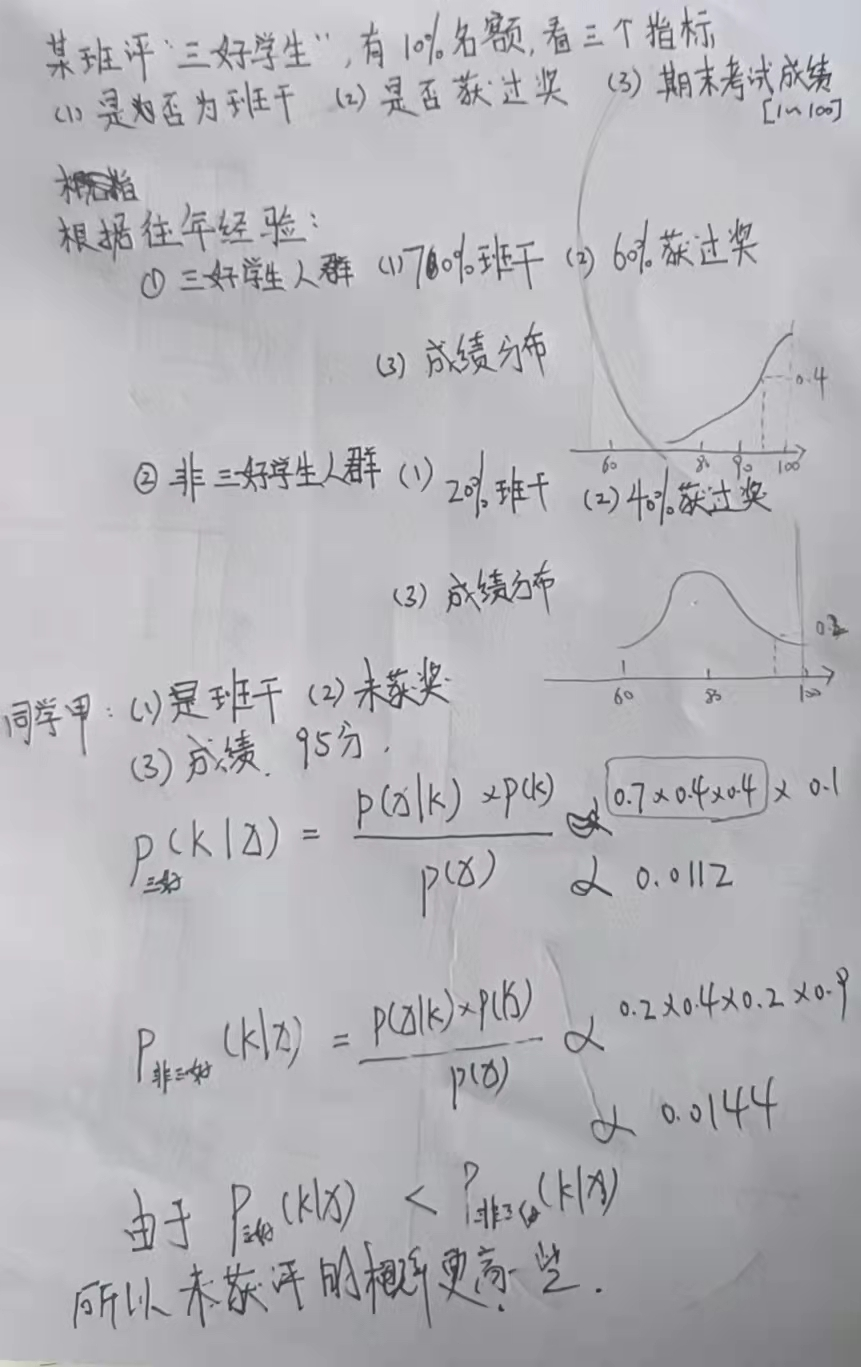 某班评“三好学生”,有10%名额,看三个指标
(1) 是否为班干 (2) 是否获过奖 (3) 期末考试成绩
[1~100]
根据往年经验:
① 三好学生人群 (1) 70%班干 (2) 60%获过奖
(3) 成绩分布
0.4
60 80 90 100
② 非三好学生人群 (1) 20%班干 (2) 40%获过奖
(3) 成绩分布
60 80 100
同学甲: (1) 是班干 (2) 未获奖
(3) 成绩. 95分.
P三好(K|x) = P(x|K) × P(K) / P(x) ∝ 0.7×0.4×0.4 × 0.1
∝ 0.0112
P非三好(K|x) = P(x|K)×P(K) / P(x) ∝ 0.2×0.4×0.2×0.9
∝ 0.0144
由于 P三好(K|x) < P非三好(K|x)
所以未获评的概率更高一些.